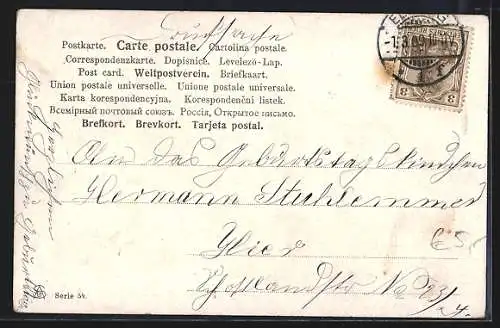 Drucksache
Postkarte. Carte postale. Cartolina postale.
Correspondenzkarte. Dopisnice. Levelezö-Lap.
Post card. Weltpostverein. Briefkaart.
Union postale universelle. Unione postale universale.
Karta korespondencyjna. Korespondenční listek.
Всемірный почтовый союзъ. Россія, Открытое письмо.
Brefkort. Brevkort. Tarjeta postal.
An das Geburtstagskindchen
Hermann Stuhlemmer
Hier
Schottlandstr No 23/24.
Serie 54.
3 3